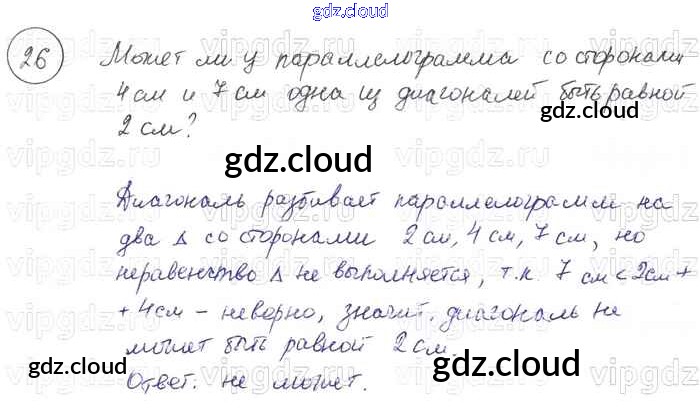 gdz.cloud
26 Может ли у параллелограмма со сторонами
4 см и 7 см одна из диагоналей быть равной
2 см?
gdz.cloud
gdz.cloud
Диагональ разбивает параллелограмм на
два Δ со сторонами 2 см, 4 см, 7 см, но
неравенство Δ не выполняется, т.к. 7 см < 2см +
+ 4см - неверно, значит диагональ не
может быть равной 2 см.
gdz.cloud
gdz.cloud
Ответ: не может.